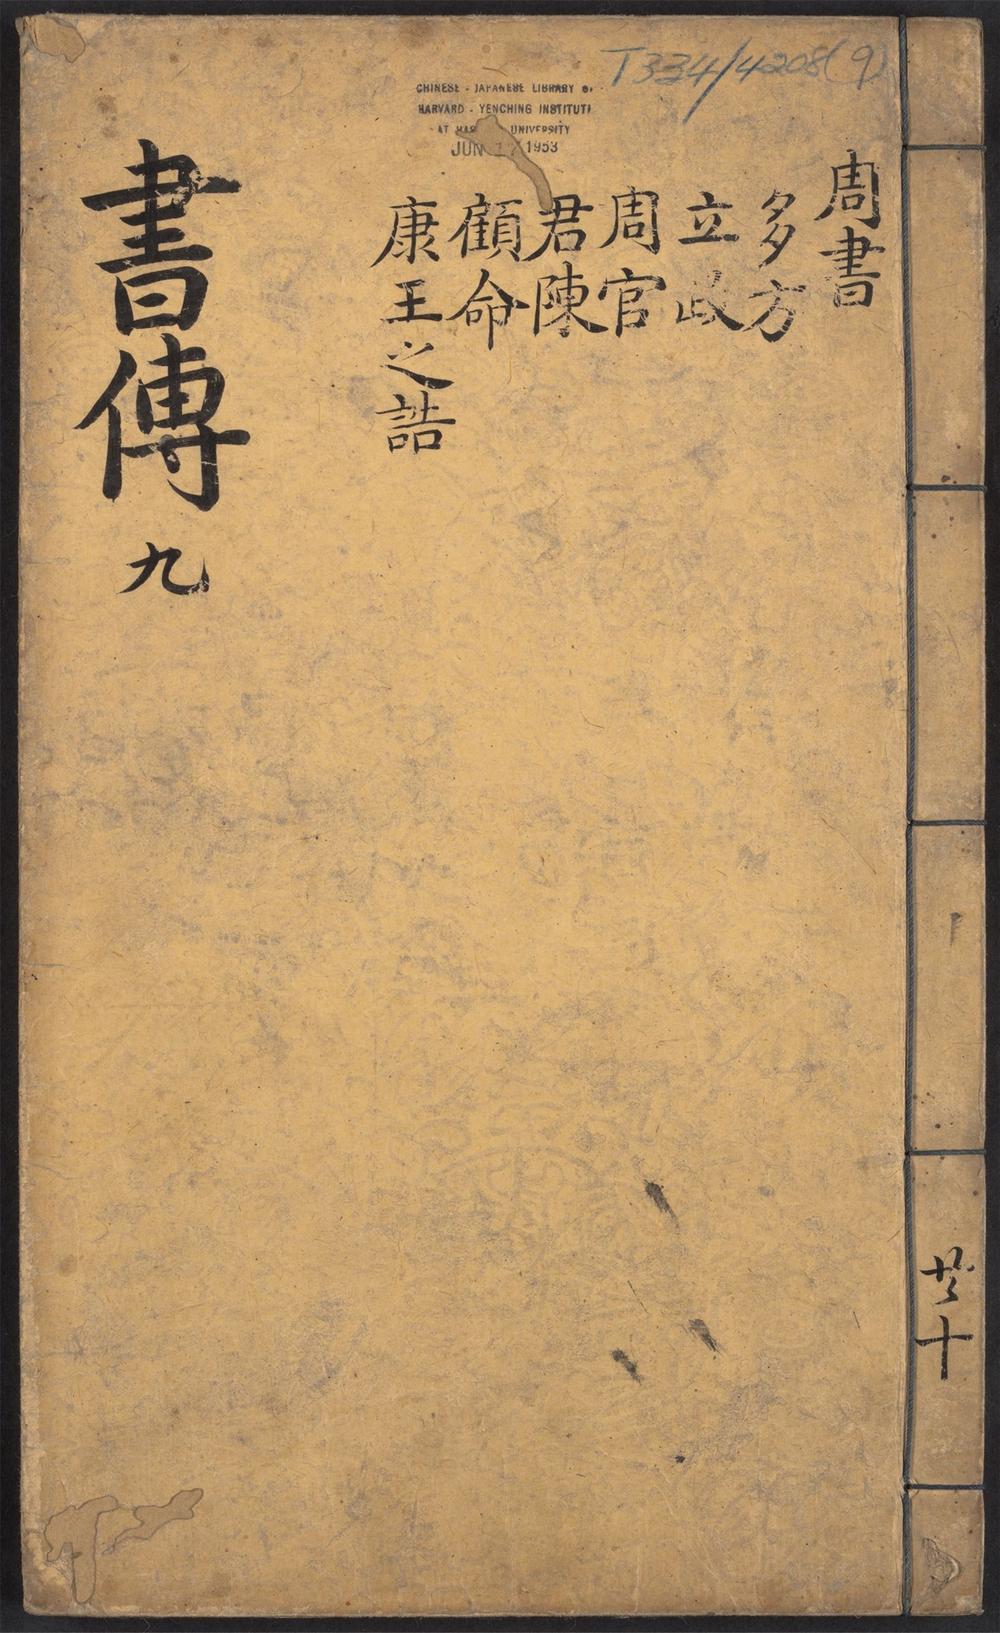 T334/4208(9)
CHINESE - JAPANESE LIBRARY
HARVARD - YENCHING INSTITUTE
AT UNIVERSITY
JUN 1953
周書
多方
立政
周官
君陳
顧命
康王之誥
書傳 九
共十